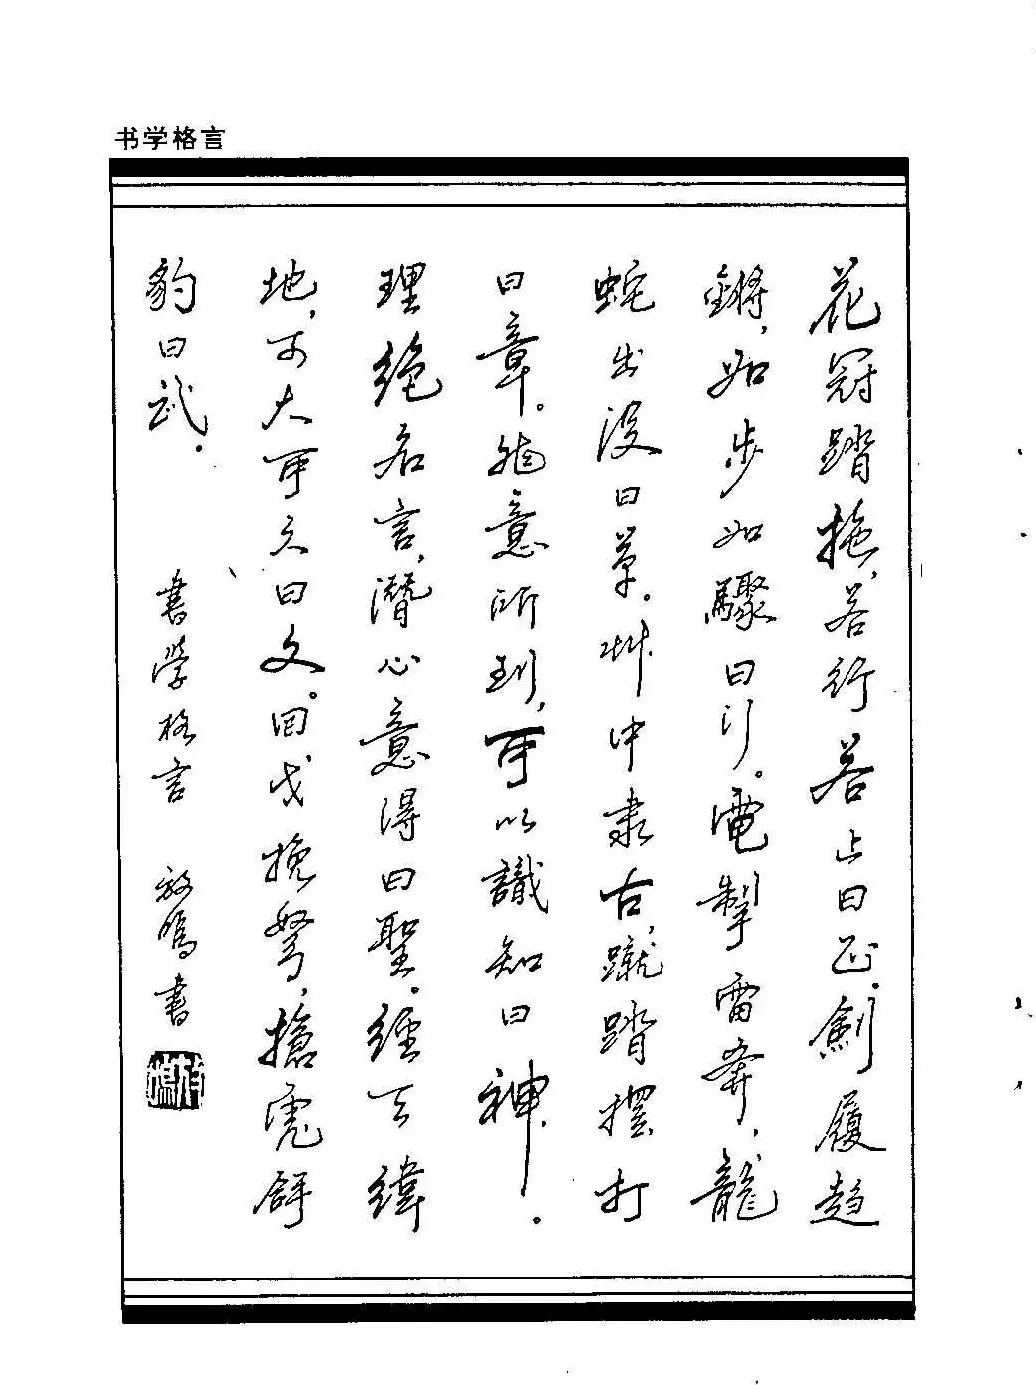 书学格言
花冠踏拖，若行若止曰正。劍履趋
鏘，如步如驟曰行。電掣雷奔，龍
蛇出没曰草。艸中隶古，蹴踏擺打
曰章。能意所到，可以識知曰神．
理絶名言，潛心意得曰聖。經天緯
地，可大可久曰文。回戈挽弩，搶虎
豹曰武．
書學格言 書